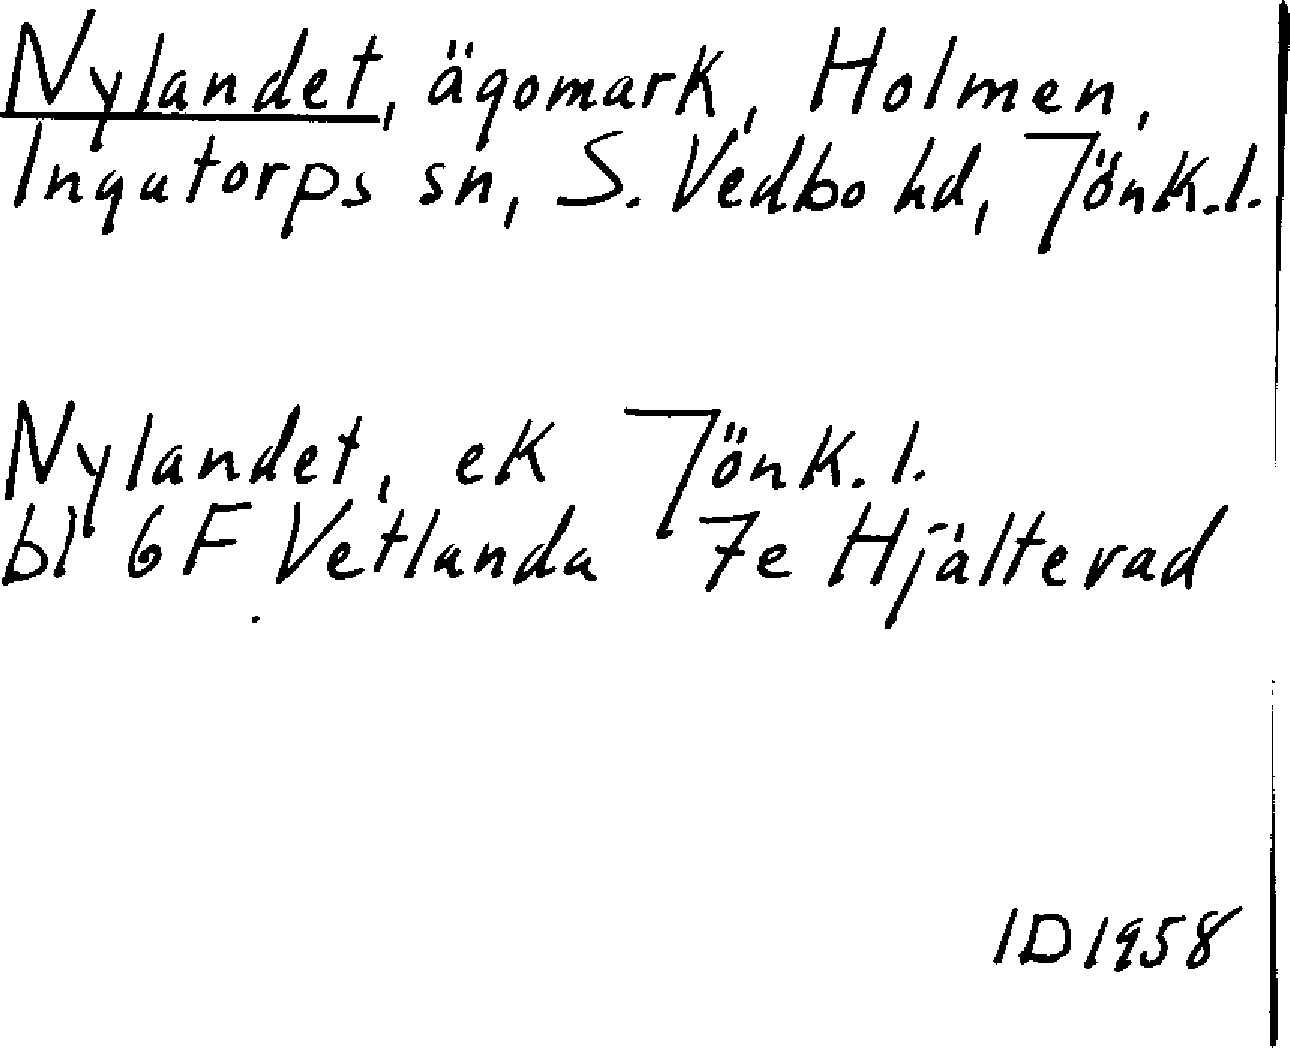 Nylandet, ägomark, Holmen,
Ingatorps sn, S. Vedbo hd, Jönk.l.
Nylandet, ek Jönk.l.
bl 6F Vetlanda 7e Hjältevad
ID 1958